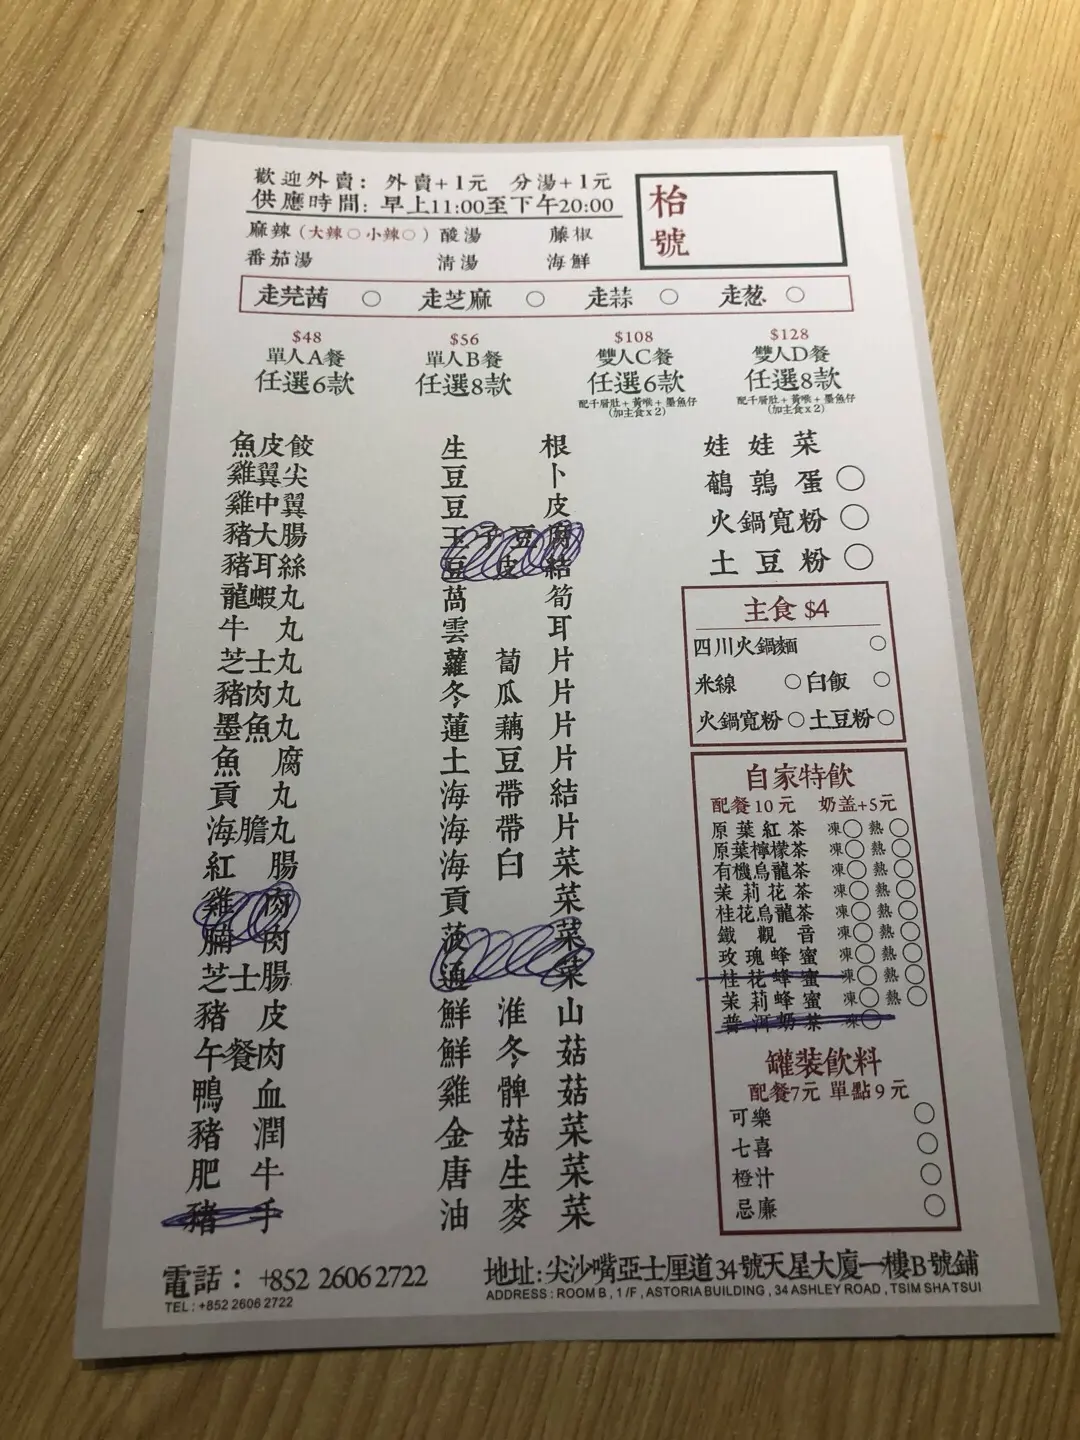 歡迎外賣：外賣+1元 分湯+1元
供應時間：早上11:00至下午20:00
枱號
麻辣（大辣○小辣○） 酸湯 藤椒
番茄湯 清湯 海鮮
走芫茜 ○ 走芝麻 ○ 走蒜 ○ 走葱 ○
$48
單人A餐
任選6款
$56
單人B餐
任選8款
$108
雙人C餐
任選6款
配千層肚+黃喉+墨魚仔
(加主食x2)
$128
雙人D餐
任選8款
配千層肚+黃喉+墨魚仔
(加主食x2)
魚皮餃
雞翼尖
雞中翼
豬大腸
豬耳絲
龍蝦丸
牛丸
芝士丸
豬肉丸
墨魚丸
魚腐
貢丸
海膽丸
紅腸
雞肉
腩肉
芝士腸
豬皮
午餐肉
鴨血
豬潤
肥牛
豬手
生根
豆卜
豆皮
玉子豆腐
豆皮結
萵筍
雲耳
蘿蔔片
冬瓜片
蓮藕片
土豆片
海帶結
海帶片
海白菜
貢菜
菠菜
通菜
鮮淮山
鮮冬菇
雞髀菇
金菇菜
唐生菜
油麥菜
娃娃菜
鵪鶉蛋 ○
火鍋寬粉 ○
土豆粉 ○
主食 $4
四川火鍋麵 ○
米線 ○ 白飯 ○
火鍋寬粉 ○ 土豆粉 ○
自家特飲
配餐10元 奶盖+5元
原葉紅茶 凍○ 熱○
原葉檸檬茶 凍○ 熱○
有機烏龍茶 凍○ 熱○
茉莉花茶 凍○ 熱○
桂花烏龍茶 凍○ 熱○
鐵觀音 凍○ 熱○
玫瑰蜂蜜 凍○ 熱○
桂花蜂蜜 凍○ 熱○
茉莉蜂蜜 凍○ 熱○
普洱奶茶 凍○
罐裝飲料
配餐7元 單點9元
可樂 ○
七喜 ○
橙汁 ○
忌廉 ○
電話：+852 2606 2722
TEL: +852 2606 2722
地址:尖沙嘴亞士厘道34號天星大廈一樓B號鋪
ADDRESS : ROOM B , 1 /F , ASTORIA BUILDING , 34 ASHLEY ROAD , TSIM SHA TSUI